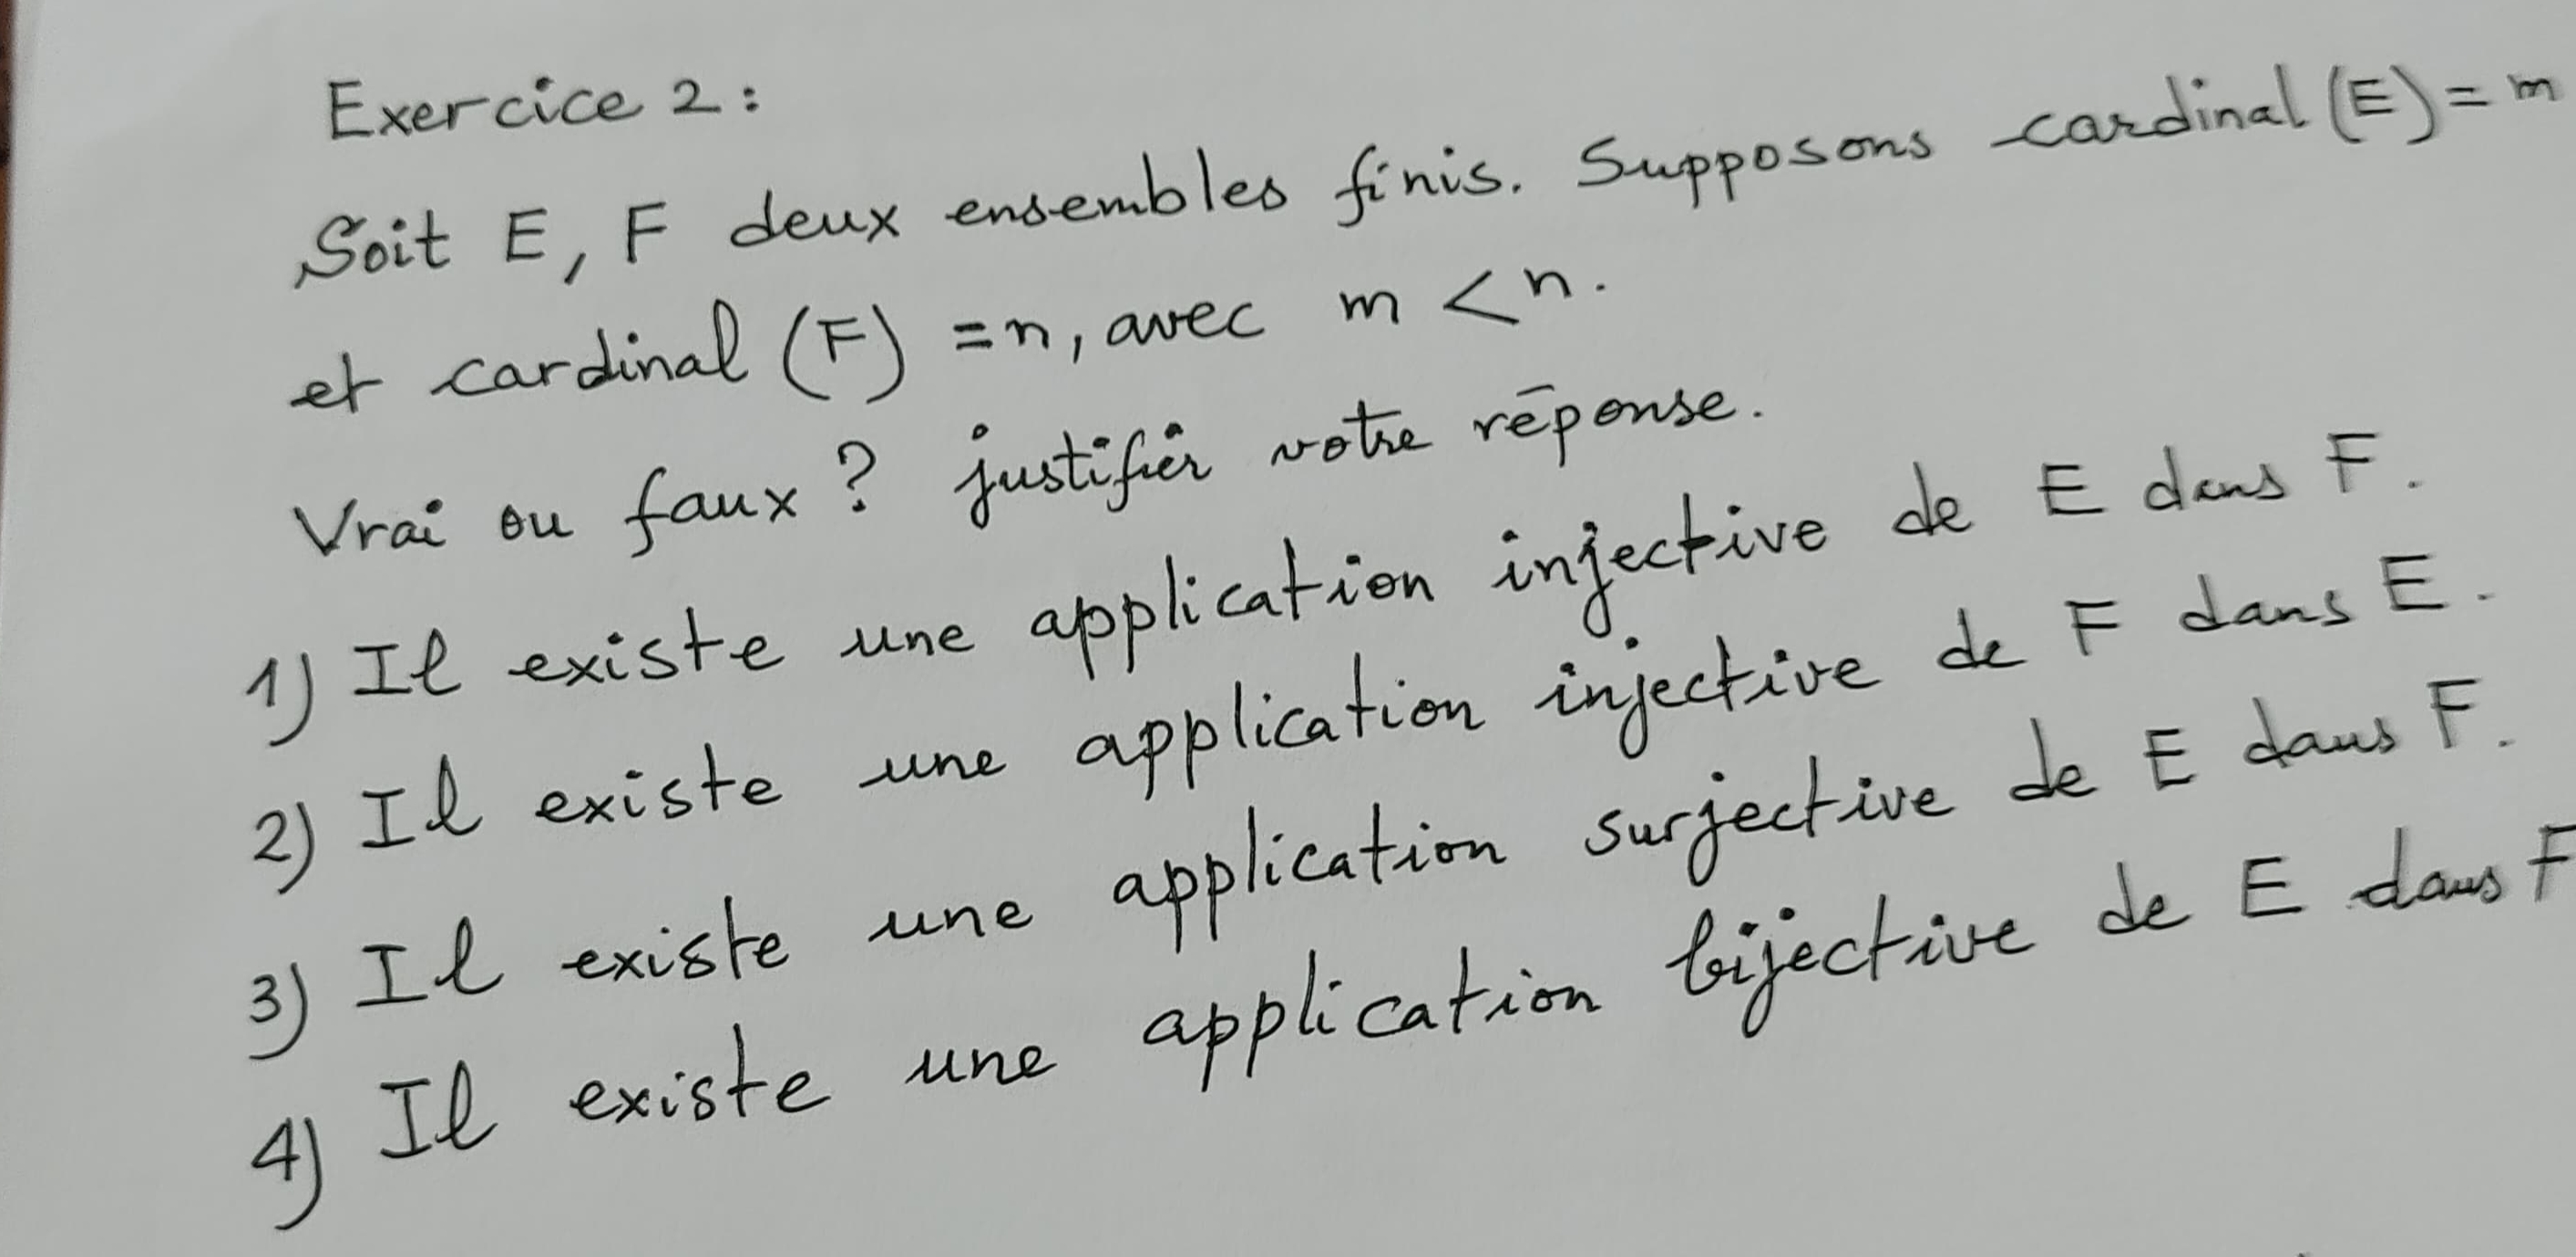 Exercice 2 :
Soit E, F deux ensembles finis. Supposons cardinal (E) = m
et cardinal (F) = n, avec m < n.
Vrai ou faux ? justifier votre réponse.
1) Il existe une application injective de E dans F.
2) Il existe une application injective de F dans E.
3) Il existe une application surjective de E dans F.
4) Il existe une application bijective de E dans F